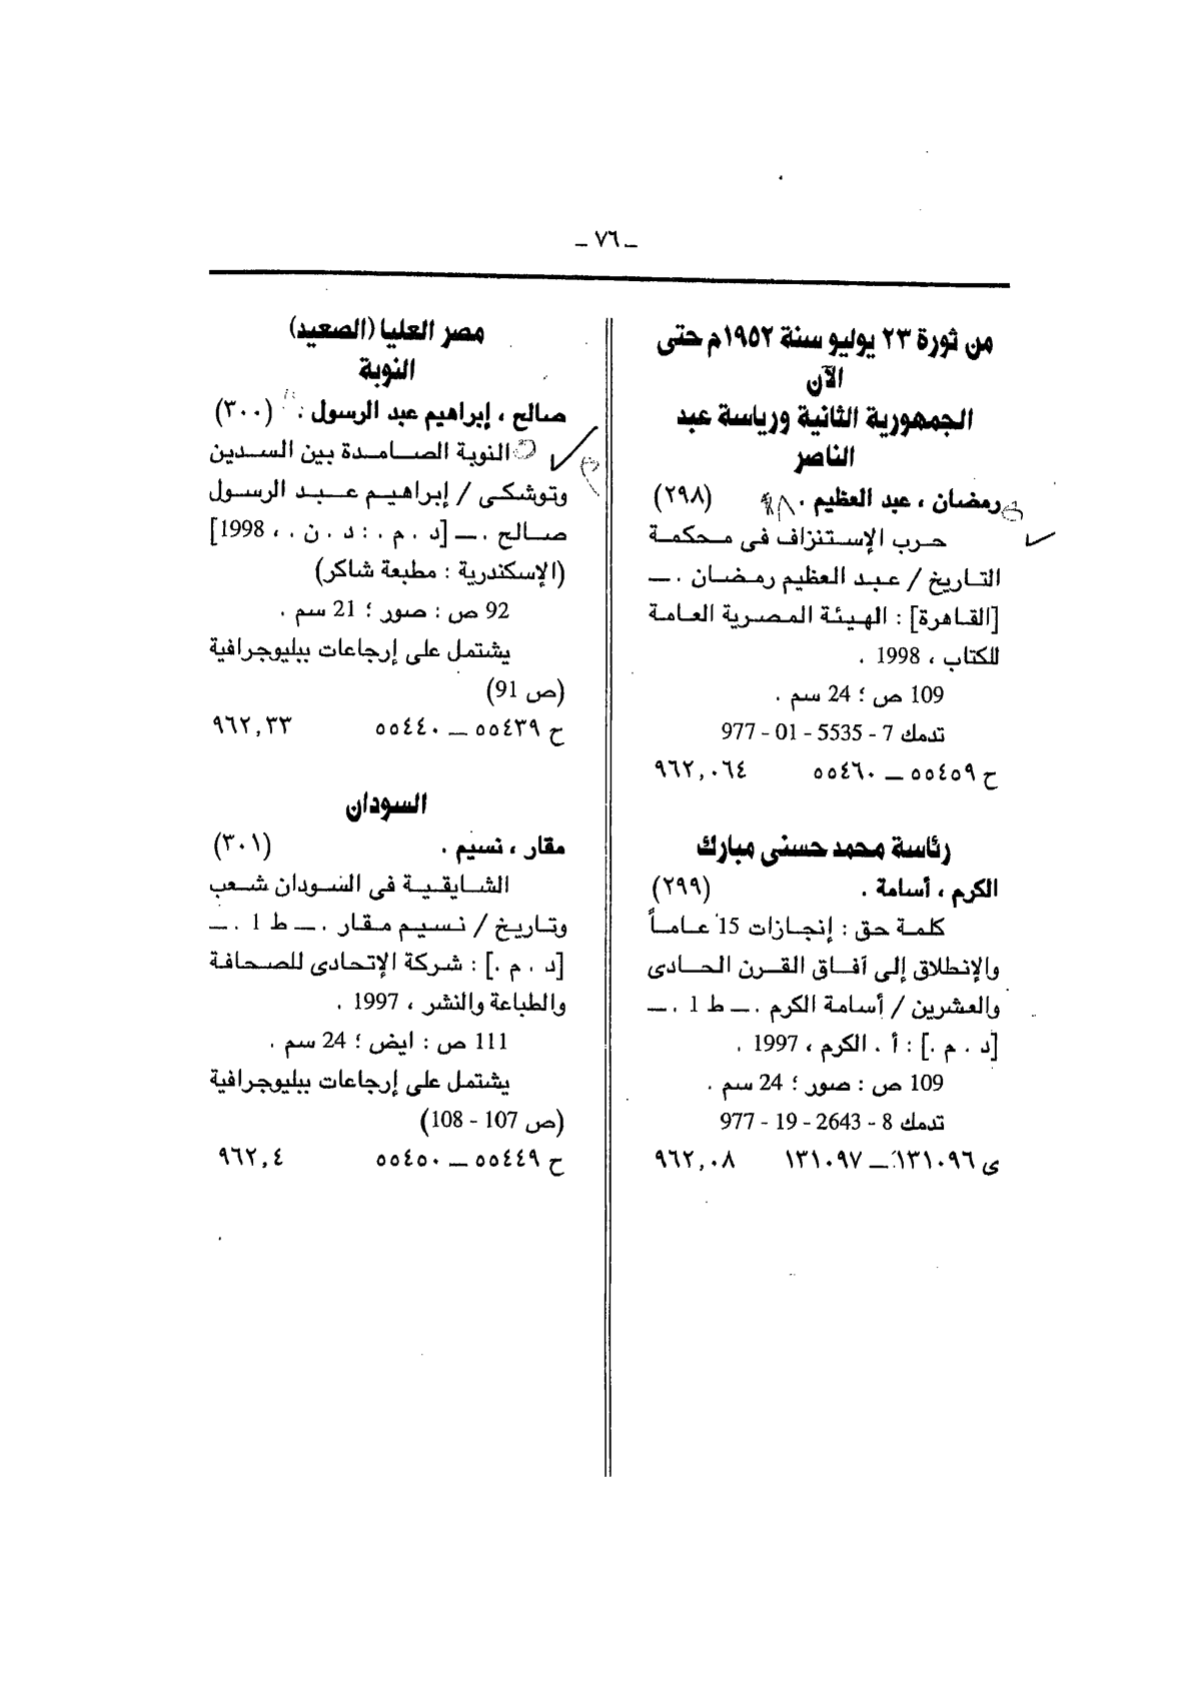 ـ ٧٦ ـ
من ثورة ٢٣ يوليو سنة ١٩٥٢م حتى
الآن
الجمهورية الثانية ورياسة عبد
الناصر
رمضان ، عبد العظيم . (٢٩٨)
حرب الإستنزاف فى محكمة
التاريخ / عبد العظيم رمضان . ــ
[القاهرة] : الهيئة المصرية العامة
للكتاب ، 1998 .
109 ص ؛ 24 سم .
تدمك 7 - 5535 - 01 - 977
ح ٥٥٤٥٩ ــ ٥٥٤٦٠ ٩٦٢,٠٦٤
رئاسة محمد حسنى مبارك
الكرم ، أسامة . (٢٩٩)
كلمة حق : إنجازات 15 عاماً
والإنطلاق إلى آفاق القرن الحادى
والعشرين / أسامة الكرم . ــ ط 1 . ــ
[د . م .] : أ . الكرم ، 1997 .
109 ص : صور ؛ 24 سم .
تدمك 8 - 2643 - 19 - 977
ى ١٣١٠٩٦ ــ ١٣١٠٩٧ ٩٦٢,٠٨
مصر العليا (الصعيد)
النوبة
صالح ، إبراهيم عبد الرسول . (٣٠٠)
النوبة الصامدة بين السدين
وتوشكى / إبراهيم عبد الرسول
صالح . ــ [د . م . : د . ن . ، 1998]
(الإسكندرية : مطبعة شاكر)
92 ص : صور ؛ 21 سم .
يشتمل على إرجاعات ببليوجرافية
(ص 91)
ح ٥٥٤٣٩ ــ ٥٥٤٤٠ ٩٦٢,٣٣
السودان
مقار ، نسيم . (٣٠١)
الشايقية فى السودان شعب
وتاريخ / نسيم مقار . ــ ط 1 . ــ
[د . م .] : شركة الإتحادى للصحافة
والطباعة والنشر ، 1997 .
111 ص : ايض ؛ 24 سم .
يشتمل على إرجاعات ببليوجرافية
(ص 107 - 108)
ح ٥٥٤٤٩ ــ ٥٥٤٥٠ ٩٦٢,٤